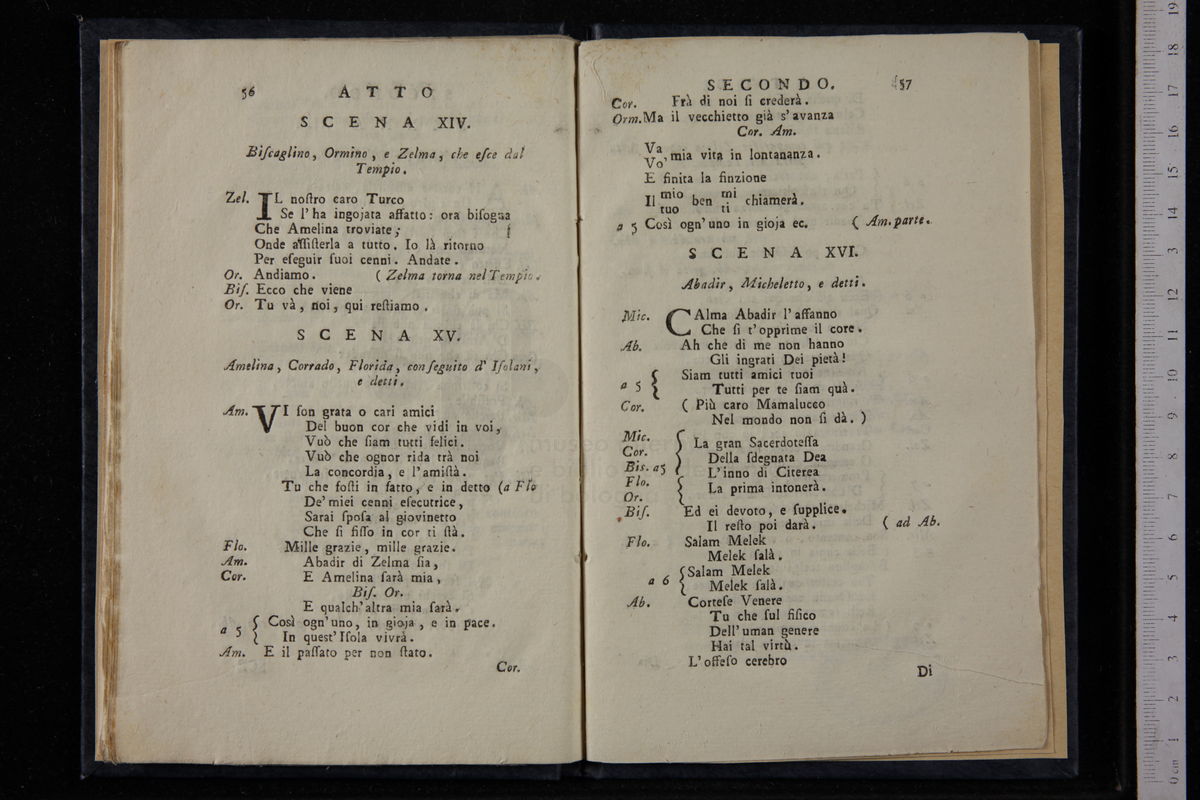 56 ATTO
SCENA XIV.
Biſcaglino, Ormino, e Zelma, che eſce dal
Tempio.
Zel. IL noſtro caro Turco
Se l'ha ingojata affatto: ora biſogna
Che Amelina troviate;
Onde aſſiſterla a tutto. Io là ritorno
Per eſeguir ſuoi cenni. Andate.
Or. Andiamo. ( Zelma torna nel Tempio.
Biſ. Ecco che viene
Or. Tu và, noi, qui reſtiamo.
SCENA XV.
Amelina, Corrado, Florida, con ſeguito d' Iſolani,
e detti.
Am. VI ſon grata o cari amici
Del buon cor che vidi in voi,
Vuò che ſiam tutti felici.
Vuò che ognor rida trà noi
La concordia, e l'amiſtà.
Tu che foſti in fatto, e in detto (a Flo
De' miei cenni eſecutrice,
Sarai ſpoſa al giovinetto
Che ſi fiſſo in cor ti ſtà.
Flo. Mille grazie, mille grazie.
Am. Abadir di Zelma ſia,
Cor. E Amelina ſarà mia,
Biſ. Or.
E qualch'altra mia ſarà.
a 5 { Così ogn'uno, in gioja, e in pace.
In queſt'Iſola vivrà.
Am. E il paſſato per non ſtato.
Cor.
SECONDO. 57
Cor. Frà di noi ſi crederà.
Orm. Ma il vecchietto già s'avanza
Cor. Am.
Va
Vo' mia vita in lontananza.
E finita la finzione
Il mio ben mi chiamerà.
tuo ti
a 5 Così ogn'uno in gioja ec. ( Am. parte.
SCENA XVI.
Abadir, Micheletto, e detti.
Mic. CAlma Abadir l'affanno
Che ſi t'opprime il core.
Ab. Ah che di me non hanno
Gli ingrati Dei pietà!
a 5 { Siam tutti amici tuoi
Tutti per te ſiam quà.
Cor. ( Più caro Mamalucco
Nel mondo non ſi dà. )
Mic.
Cor. { La gran Sacerdoteſſa
Della ſdegnata Dea
Bis. a5 L'inno di Citerea
Flo. { La prima intonerà.
Or.
Biſ. Ed ei devoto, e ſupplice.
Il reſto poi darà. ( ad Ab.
Flo. Salam Melek
Melek ſalà.
a 6 { Salam Melek
Melek ſalà.
Ab. Corteſe Venere
Tu che ſul fiſico
Dell'uman genere
Hai tal virtù.
L'offeſo cerebro
Di